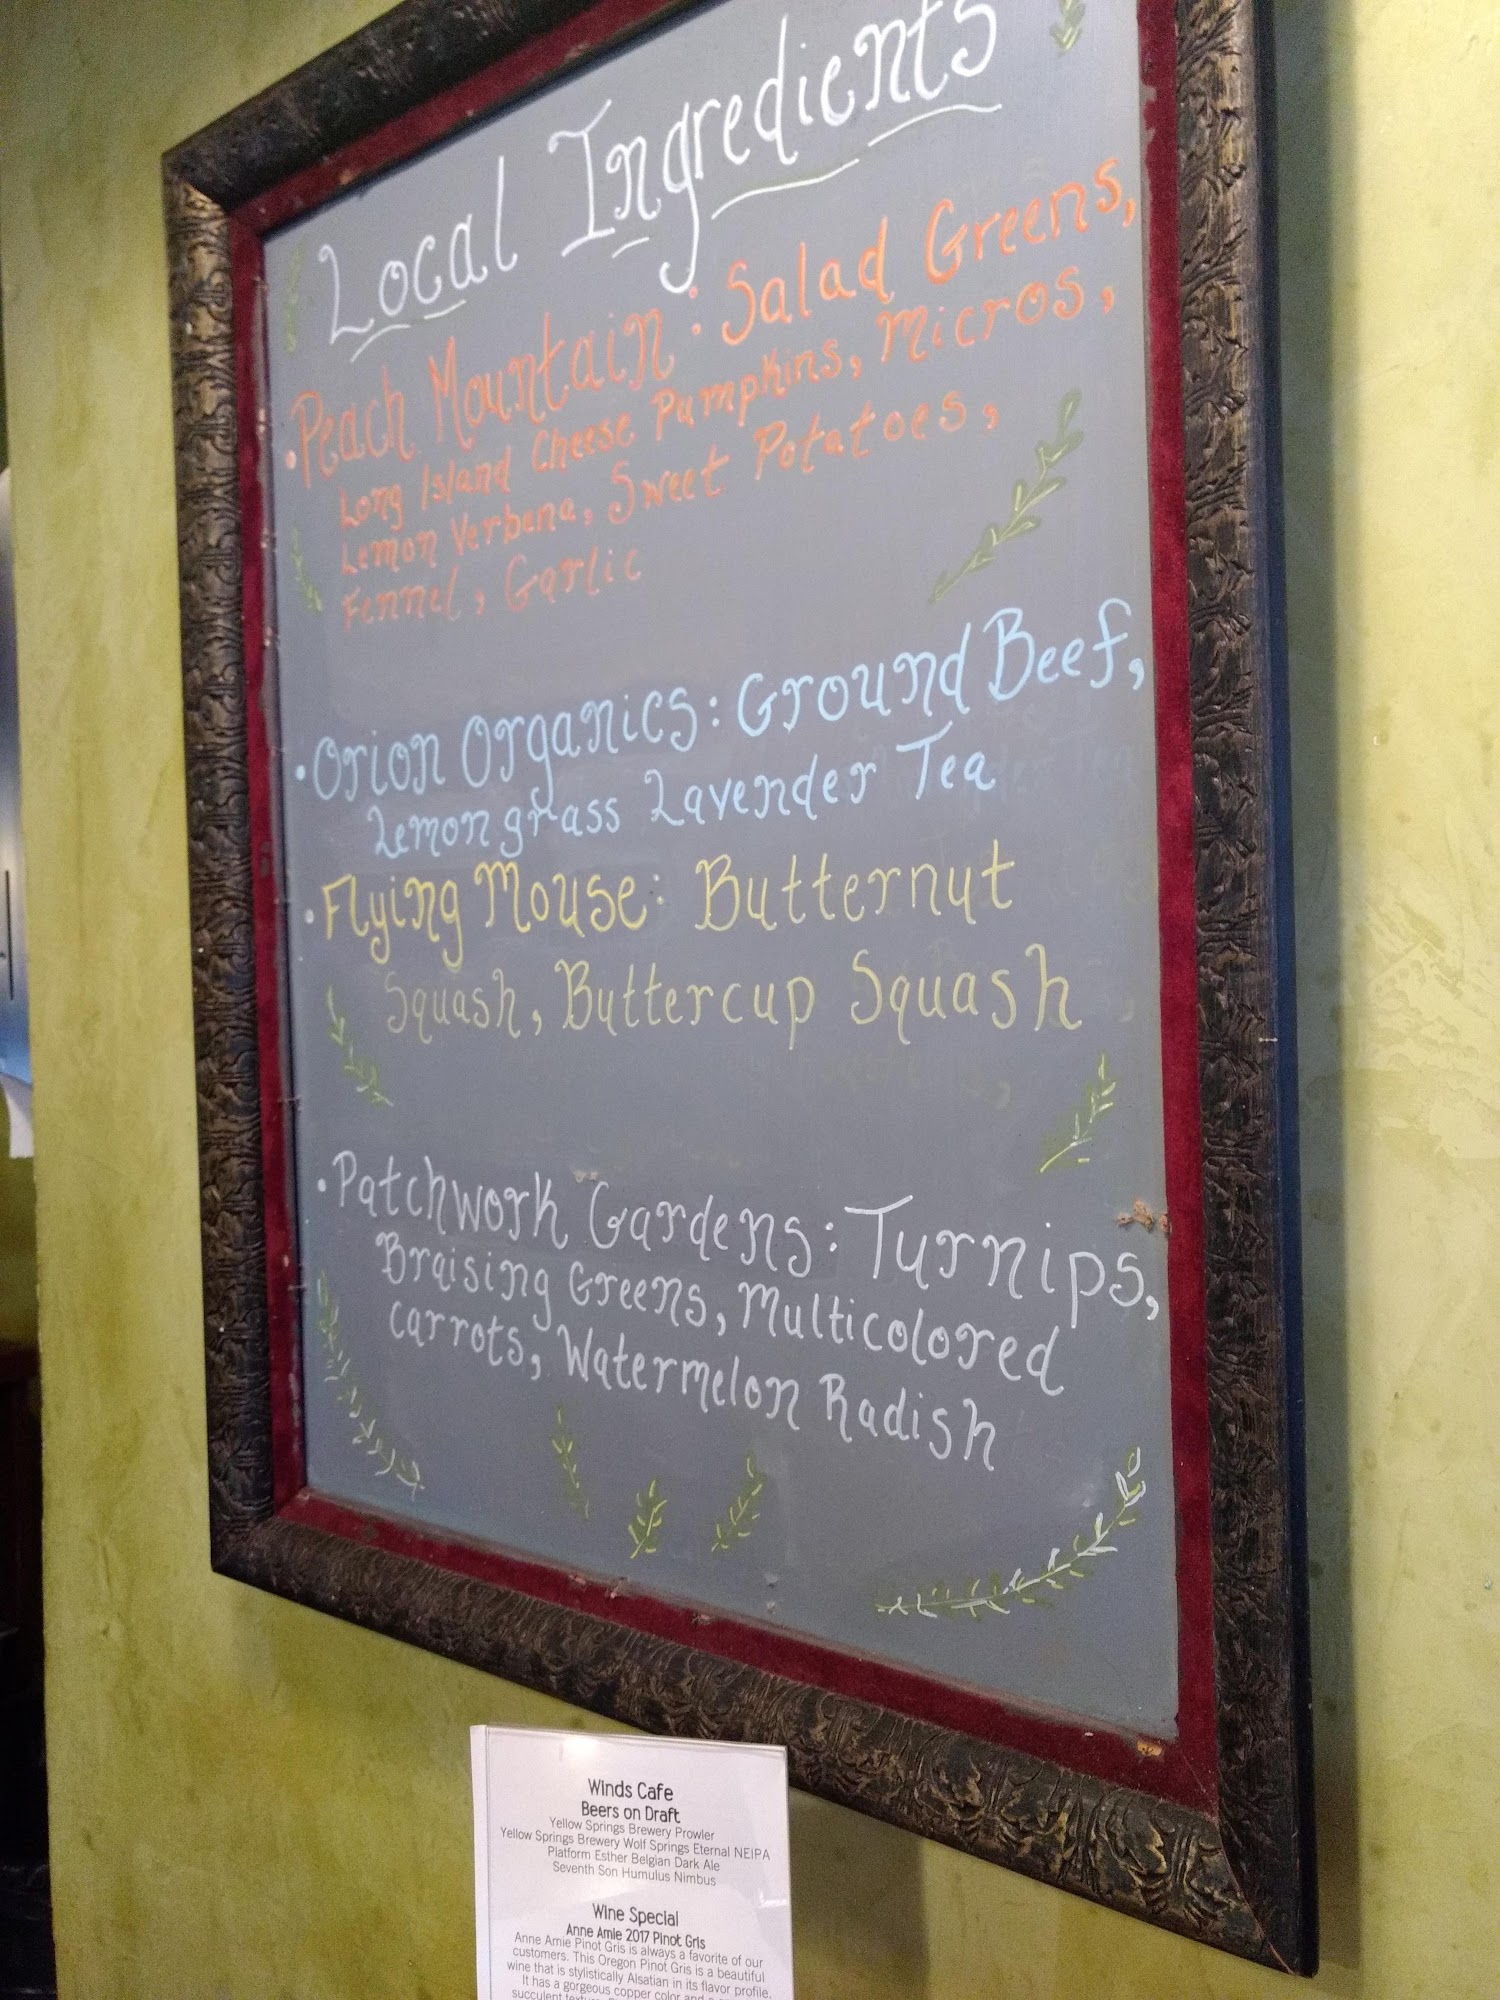 Local Ingredients
• Peach Mountain: Salad Greens,
Long Island Cheese Pumpkins, Micros,
Lemon Verbena, Sweet Potatoes,
Fennel, Garlic
• Orion Organics: Ground Beef,
Lemongrass Lavender Tea
• Flying Mouse: Butternut
Squash, Buttercup Squash
• Patchwork Gardens: Turnips,
Braising Greens, Multicolored
carrots, Watermelon Radish
Winds Cafe
Beers on Draft
Yellow Springs Brewery Prowler
Yellow Springs Brewery Wolf Springs Eternal NEIPA
Platform Esther Belgian Dark Ale
Seventh Son Humulus Nimbus
Wine Special
Anne Amie 2017 Pinot Gris
Anne Amie Pinot Gris is always a favorite of our
customers. This Oregon Pinot Gris is a beautiful
wine that is stylistically Alsatian in its flavor profile.
It has a gorgeous copper color and
succulent